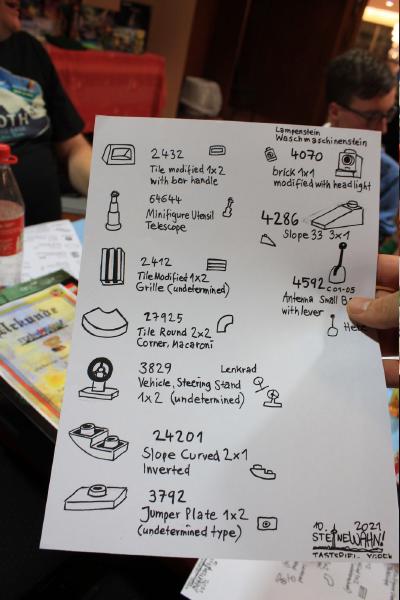 2432
Tile modified 1x2
with bar handle
64644
Minifigure Utensil
Telescope
2412
Tile Modified 1x2
Grille (undetermined)
27925
Tile Round 2x2
Corner, Macaroni
3829
Lenkrad
Vehicle, Steering Stand
1x2 (undetermined)
24201
Slope Curved 2x1
Inverted
3792
Jumper Plate 1x2
(undetermined type)
Lampenstein
Waschmaschinenstein
4070
brick 1x1
modified with headlight
4286
Slope 33 3x1
4592
C01-05
Antenna Small
with lever
10. 2021
STEINEWAHN!
Urkunde